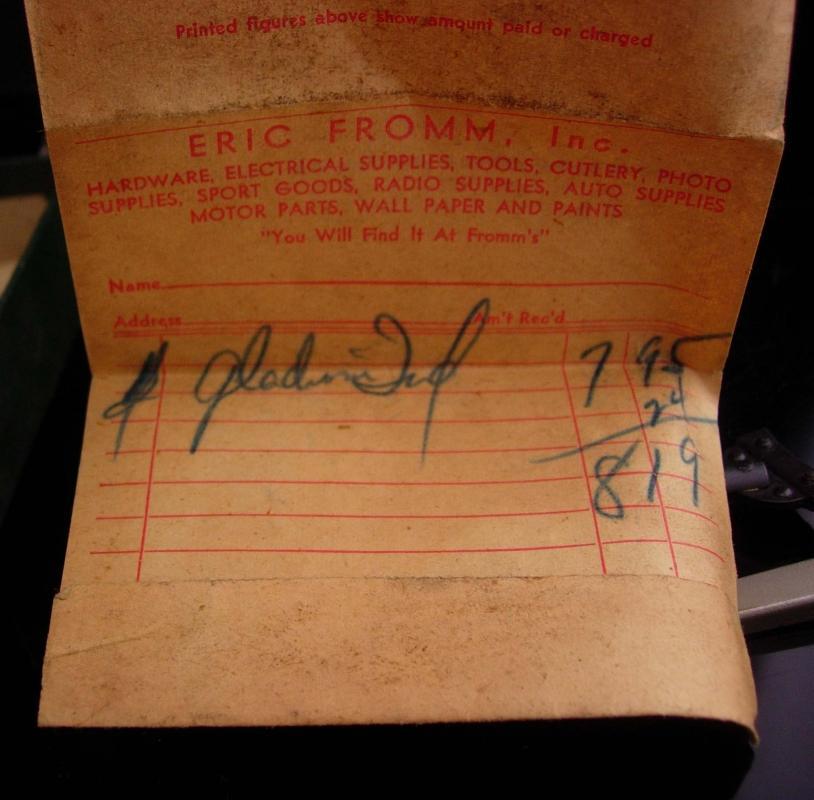 Printed figures above show amount paid or charged
ERIC FROMM, Inc.
HARDWARE, ELECTRICAL SUPPLIES, TOOLS, CUTLERY, PHOTO
SUPPLIES, SPORT GOODS, RADIO SUPPLIES, AUTO SUPPLIES
MOTOR PARTS, WALL PAPER AND PAINTS
"You Will Find It At Fromm's"
Name
Address Am't Rec'd
7 95
24
8 19